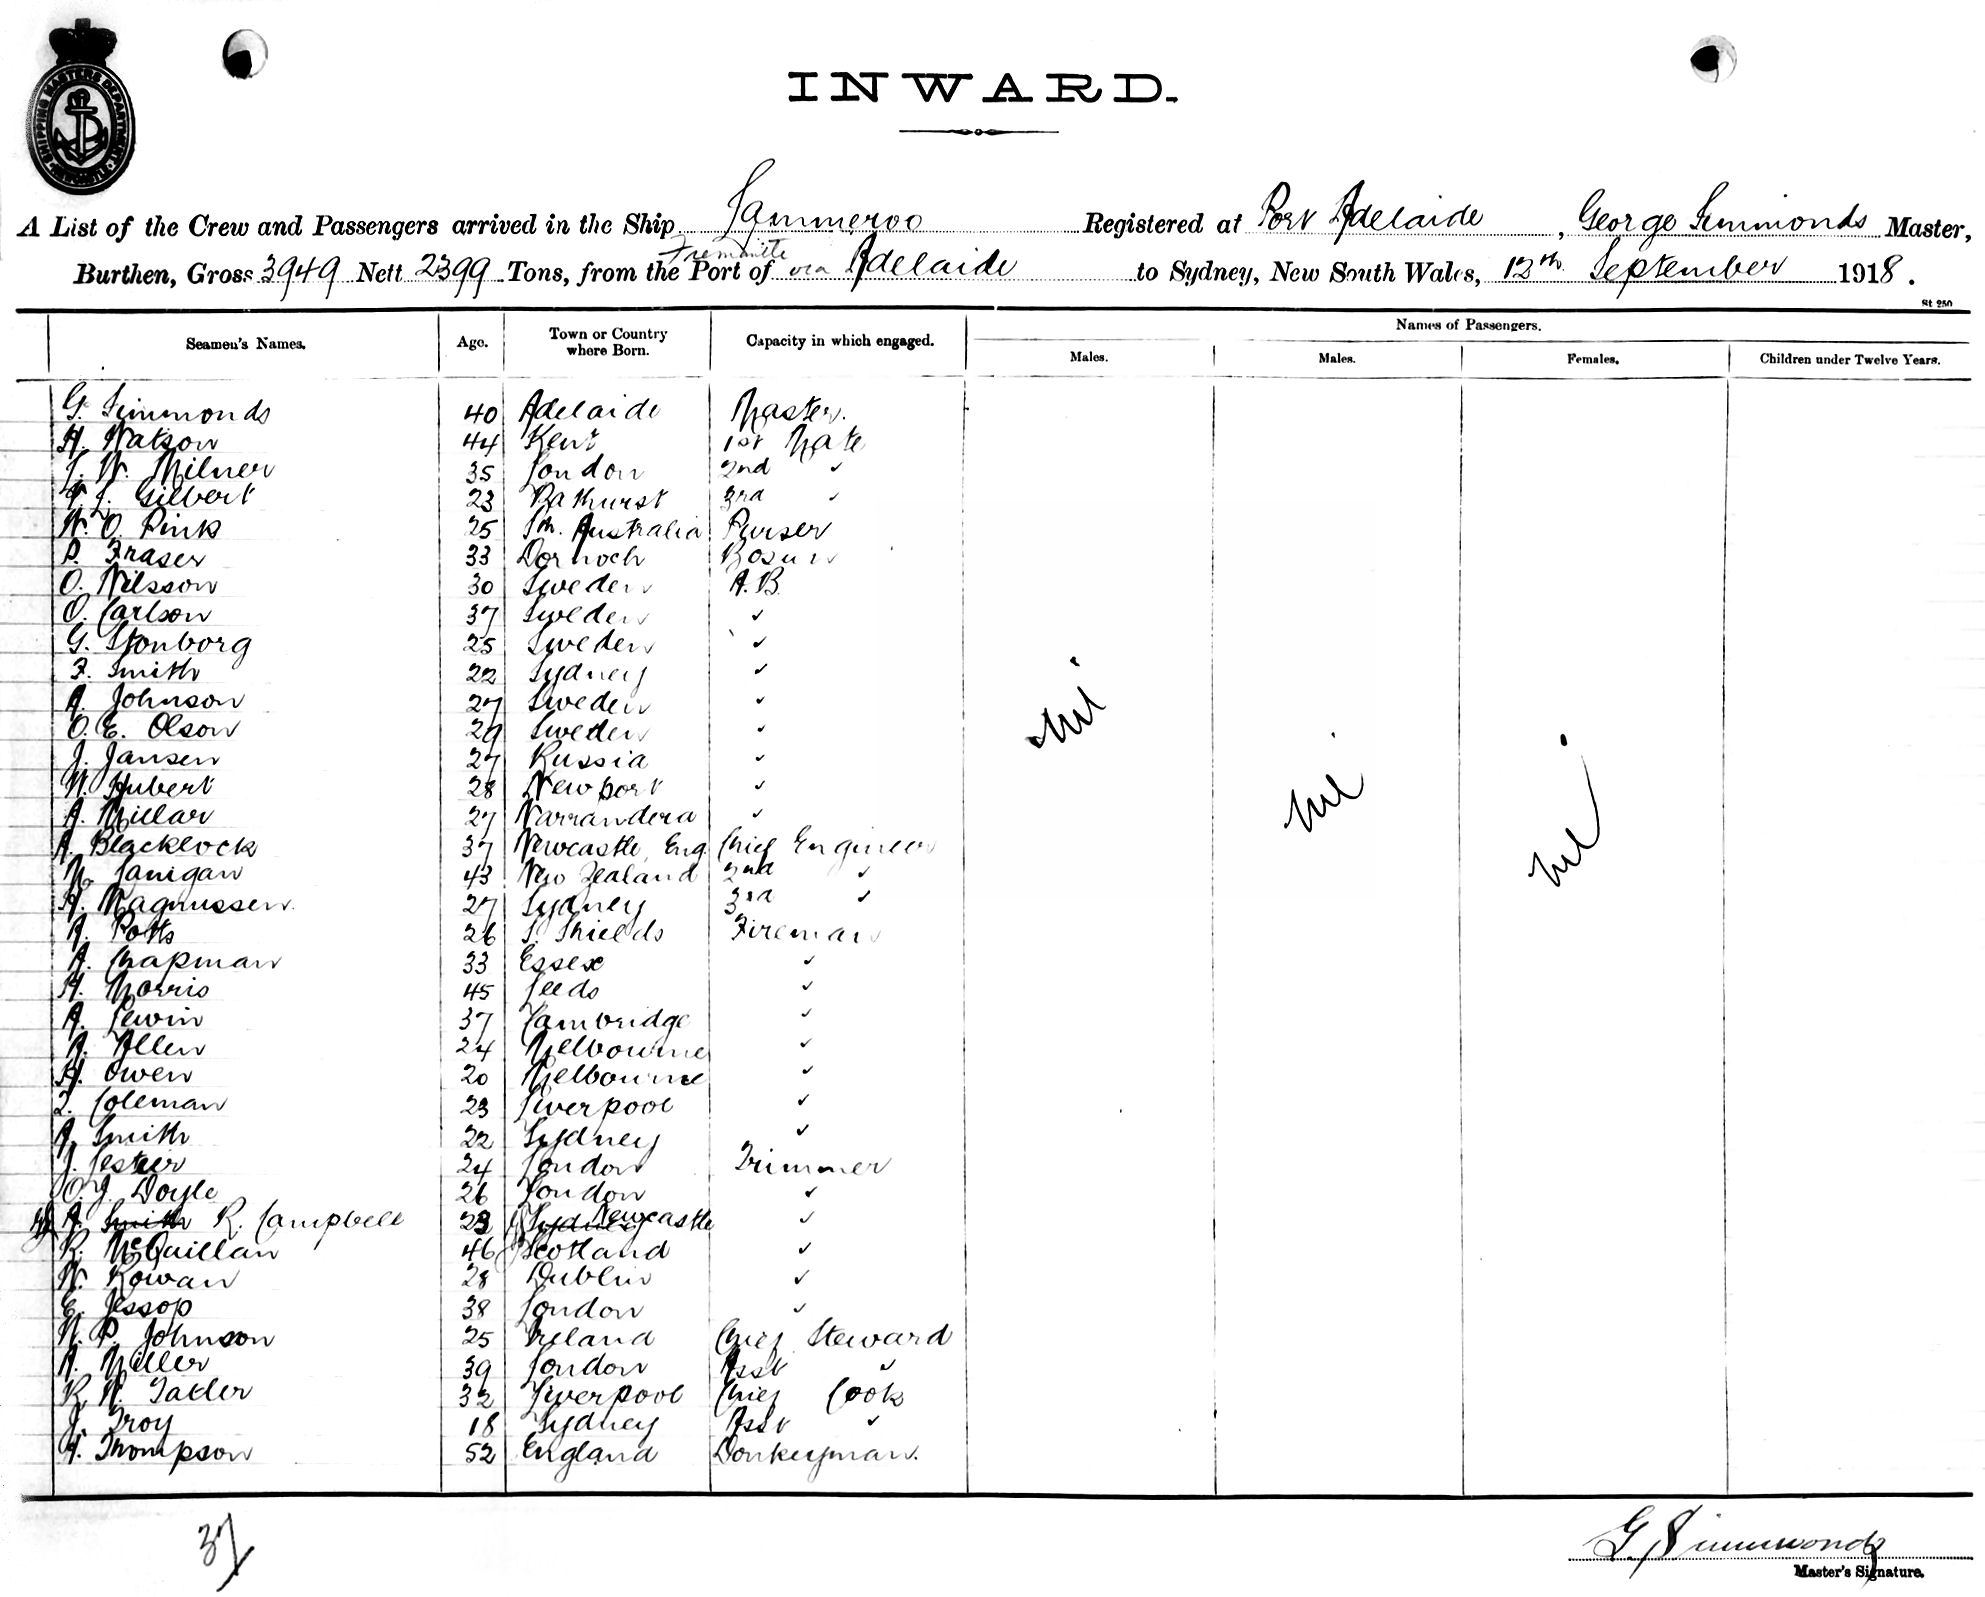 SHIPPING MASTERS DEPARTMENT NEWCASTLE
INWARD.
A List of the Crew and Passengers arrived in the Ship Registered at Port Adelaide, George Simmonds Master,
Burthen, Gross 3949 Nett 2399 Tons, from the Port of Fremantle via Adelaide to Sydney, New South Wales, 12th September 1918.
St 250
Seamen's Names. Age. Town or Country where Born. Capacity in which engaged. Names of Passengers.
Males. Males. Females. Children under Twelve Years.
G. Simmonds 40 Adelaide Master.
H. Watson 44 Kent 1st Mate
W. Milner 35 London 2nd "
Gilbert 23 Bathurst 3rd "
W. O. Pink 25 Sth. Australia Purser
P. Fraser 33 Dornoch Bosun
O. Nilsson 30 Sweden A.B.
O. Carlson 37 Sweden "
G. Stonborg 25 Sweden "
F. Smith 22 Sydney "
A. Johnson 27 Sweden "
O. E. Olson 29 Sweden "
J. Jansen 27 Russia "
Hubert 28 Newport "
A. Millar 27 Narrandera "
A. Blacklock 37 Newcastle, Eng Chief Engineer
Lanigan 43 New Zealand 2nd "
H. Magnussen 27 Sydney 3rd "
Potts 26 S. Shields Fireman
A. Chapman 33 Essex "
H. Morris 45 Leeds "
A. Lewin 37 Cambridge "
A. Allen 24 Melbourne "
H. Owen 20 Melbourne "
Coleman 23 Liverpool "
A. Smith 22 Sydney "
J. Jester 24 London Trimmer
O. J. Doyle 26 London "
A. Smith R. Campbell 23 Sydney Newcastle "
R. McQuillan 46 Scotland "
W. Rowan 28 Dublin "
E. Jessop 38 London "
W. P. Johnson 25 Ireland Chief Steward
A. Miller 39 London Asst "
R. W. Tatler 32 Liverpool Chief Cook
J. Troy 18 Sydney Asst "
Thompson 52 England Donkeyman.
nil
nil
nil
37
G. Simmonds
Master's Signature.